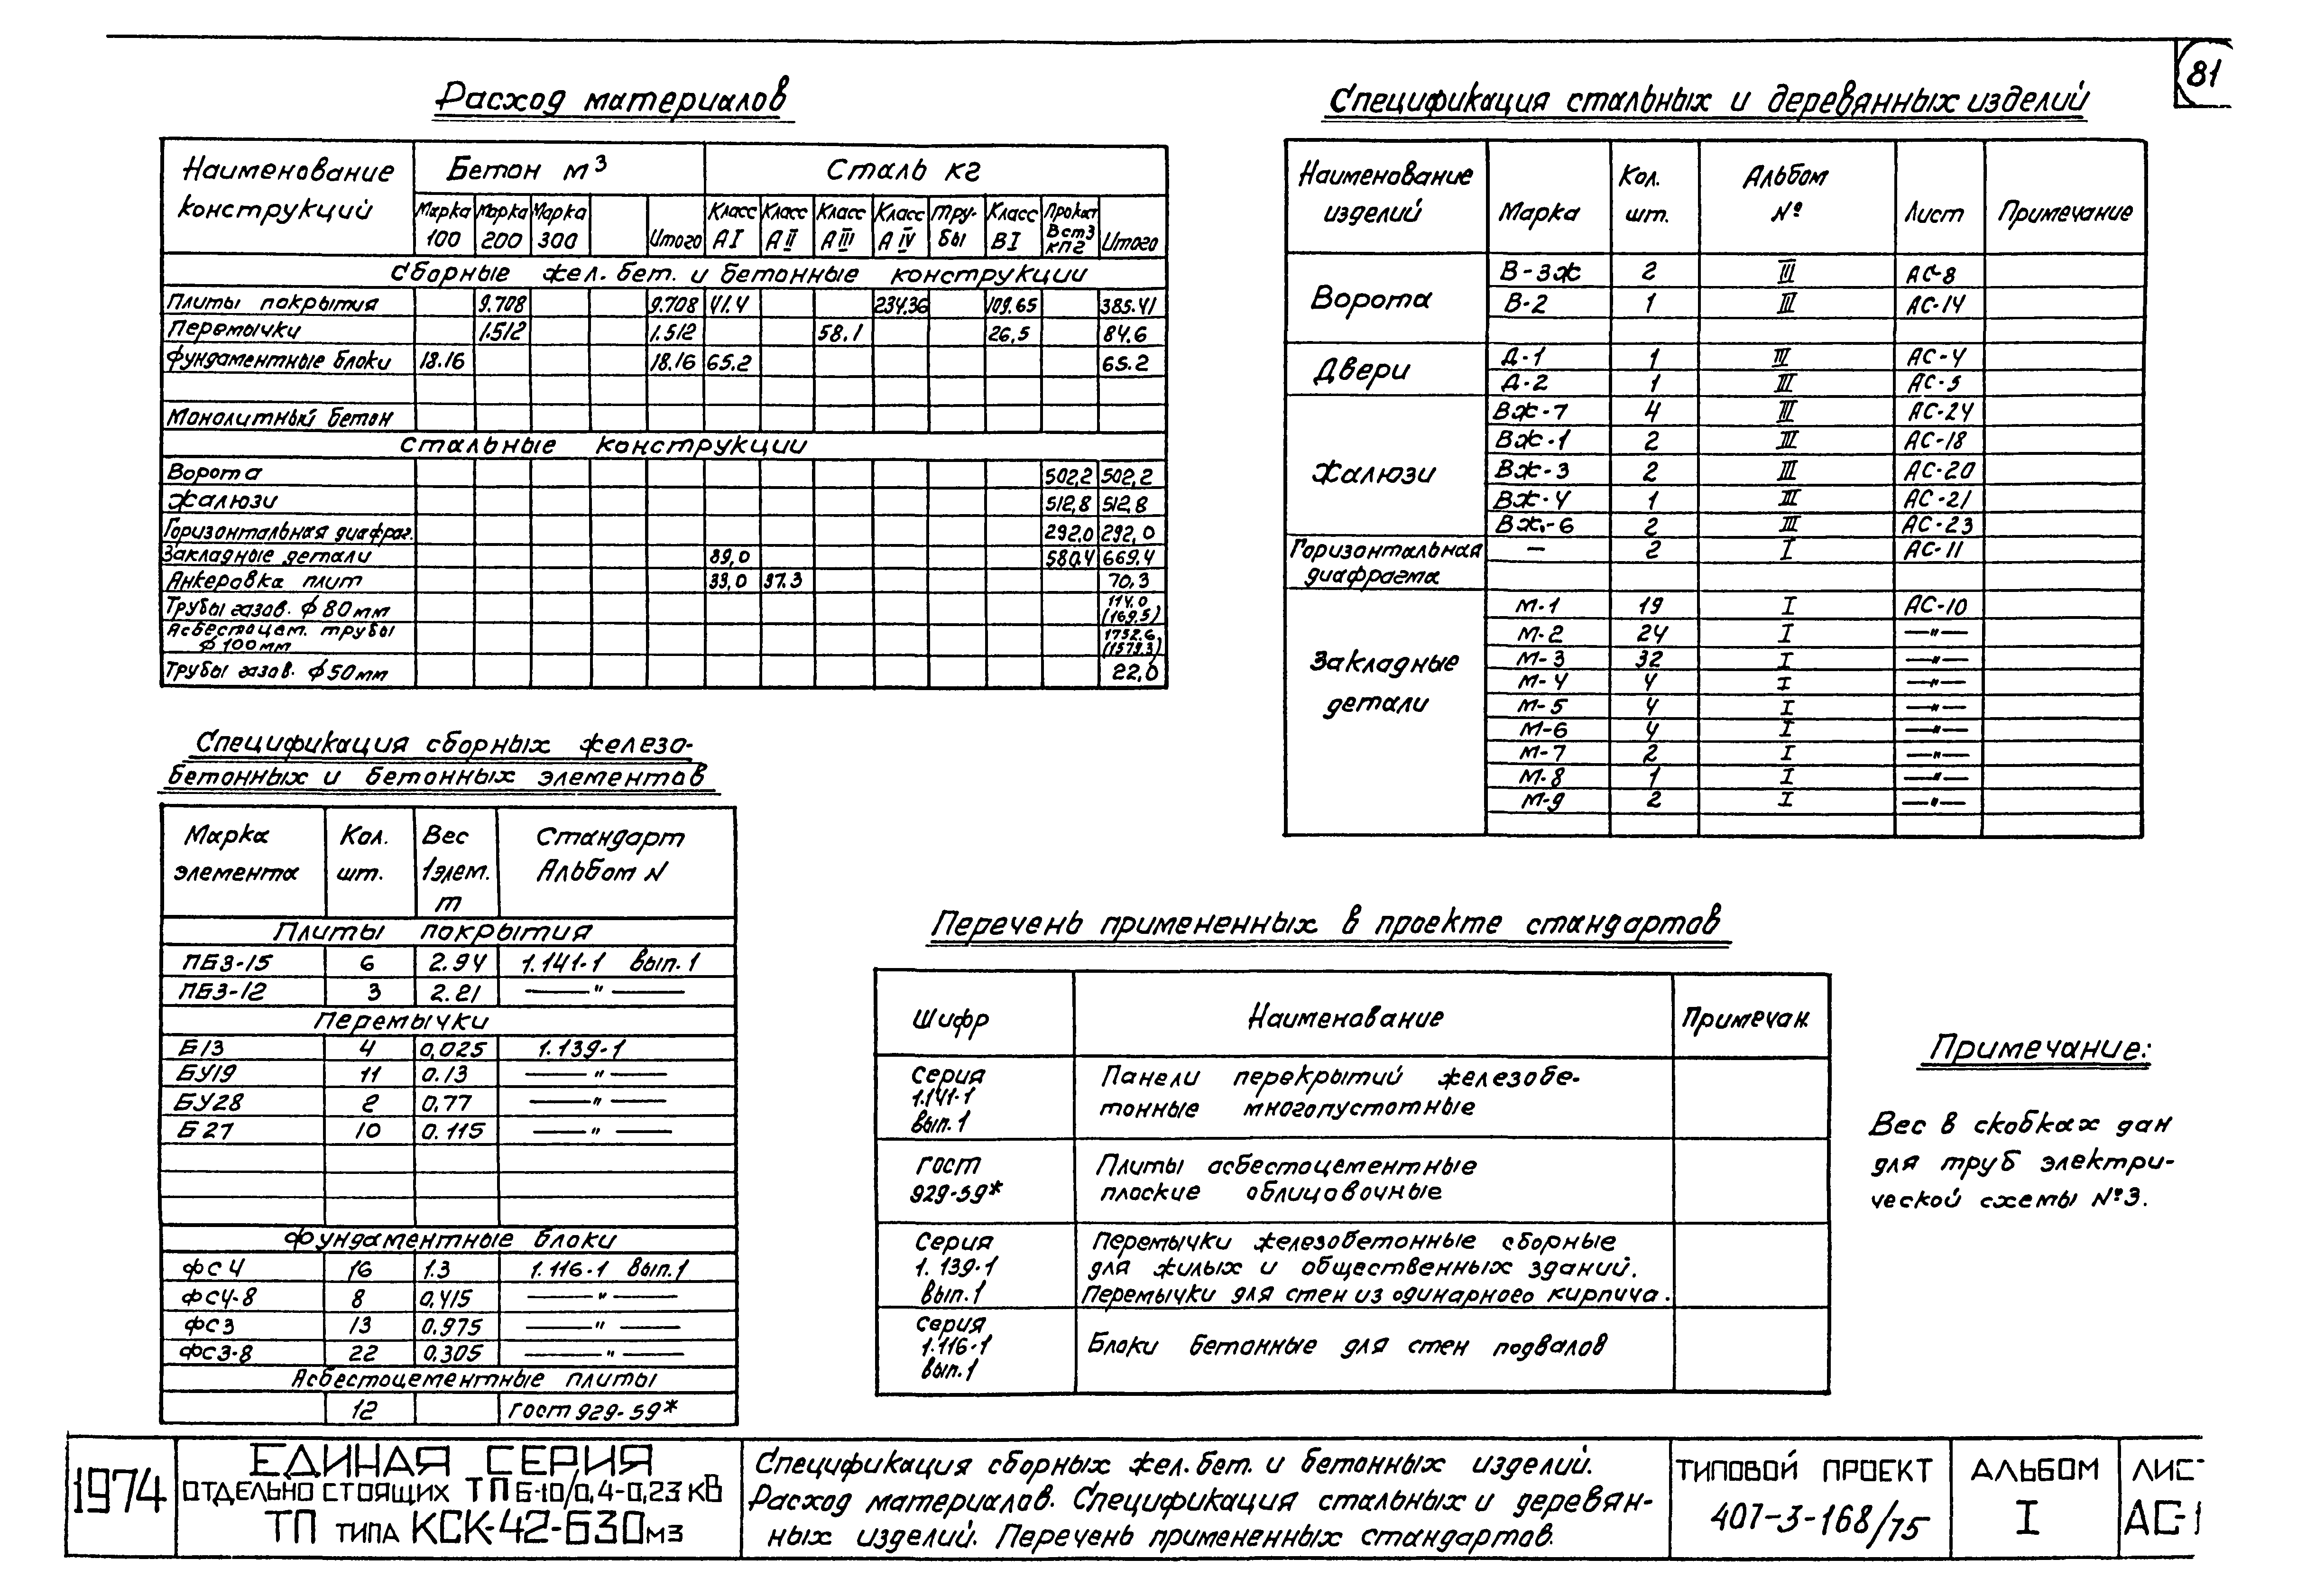 81
Расход материалов
Наименование конструкций | Бетон м³ | Сталь кг
Марка 100 | Марка 200 | Марка 300 | | Итого | Класс АI | Класс АII | Класс АIII | Класс АIV | Тру-бы | Класс ВI | Прокат Вст3 кп2 | Итого
Сборные жел. бет. и бетонные конструкции
Плиты покрытия | 9.708 | 9.708 | 41.4 | 234.36 | 109.65 | 385.41
Перемычки | 1.512 | 1.512 | 58.1 | 26,5 | 84.6
Фундаментные блоки | 18.16 | 18.16 | 65.2 | 65.2
Монолитный бетон
Стальные конструкции
Ворота | 502,2 | 502,2
Жалюзи | 512,8 | 512,8
Горизонтальная диафраг. | 292,0 | 292,0
Закладные детали | 89,0 | 580.4 | 669.4
Анкеровка плит | 33,0 | 37.3 | 70,3
Трубы газов. ф 80мм | 114.0 (169,5)
Асбестоцем. трубы ф 100мм | 1752.6 (1579.3)
Трубы газов. ф 50мм | 22,0
Спецификация сборных железо-
бетонных и бетонных элементов
Марка элемента | Кол. шт. | Вес 1 элем. т | Стандарт Альбом N
Плиты покрытия
ПБ3-15 | 6 | 2.94 | 1.141-1 вып.1
ПБ3-12 | 3 | 2.21 | —"—
Перемычки
Б13 | 4 | 0,025 | 1.139-1
БУ19 | 11 | 0.13 | —"—
БУ28 | 2 | 0,77 | —"—
Б27 | 10 | 0.115 | —"—
Фундаментные блоки
ФС4 | 16 | 1.3 | 1.116-1 вып.1
ФС4-8 | 8 | 0,415 | —"—
ФС3 | 13 | 0,975 | —"—
ФС3-8 | 22 | 0,305 | —"—
Асбестоцементные плиты
12 | гост 929-59*
Спецификация стальных и деревянных изделий
Наименование изделий | Марка | Кол. шт. | Альбом № | Лист | Примечание
Ворота | В-3ж | 2 | III | АС-8
В-2 | 1 | III | АС-14
Двери | Д-1 | 1 | III | АС-4
Д-2 | 1 | III | АС-5
Жалюзи | ВЖ-7 | 4 | III | АС-24
ВЖ-1 | 2 | III | АС-18
ВЖ-3 | 2 | III | АС-20
ВЖ-4 | 1 | III | АС-21
ВЖ-6 | 2 | III | АС-23
Горизонтальная диафрагма | — | 2 | I | АС-11
Закладные детали | М-1 | 19 | I | АС-10
М-2 | 24 | I | —"—
М-3 | 32 | I | —"—
М-4 | 4 | I | —"—
М-5 | 4 | I | —"—
М-6 | 4 | I | —"—
М-7 | 2 | I | —"—
М-8 | 1 | I | —"—
М-9 | 2 | I | —"—
Перечень примененных в проекте стандартов
Шифр | Наименование | Примечан.
Серия 1.141-1 вып.1 | Панели перекрытий железобе-
тонные многопустотные
гост 929-59* | Плиты асбестоцементные
плоские облицовочные
Серия 1.139-1 вып.1 | Перемычки железобетонные сборные
для жилых и общественных зданий.
Перемычки для стен из одинарного кирпича.
Серия 1.116-1 вып.1 | Блоки бетонные для стен подвалов
Примечание:
Вес в скобках дан
для труб электри-
ческой схемы №3.
1974
ЕДИНАЯ СЕРИЯ
ОТДЕЛЬНО СТОЯЩИХ ТП Б-10/0,4-0,23 КВ
ТП ТИПА КСК-42-630м3
Спецификация сборных жел. бет. и бетонных изделий.
Расход материалов. Спецификация стальных и деревян-
ных изделий. Перечень примененных стандартов.
ТИПОВОЙ ПРОЕКТ
407-3-168/75
АЛЬБОМ
I
ЛИС
АС-1